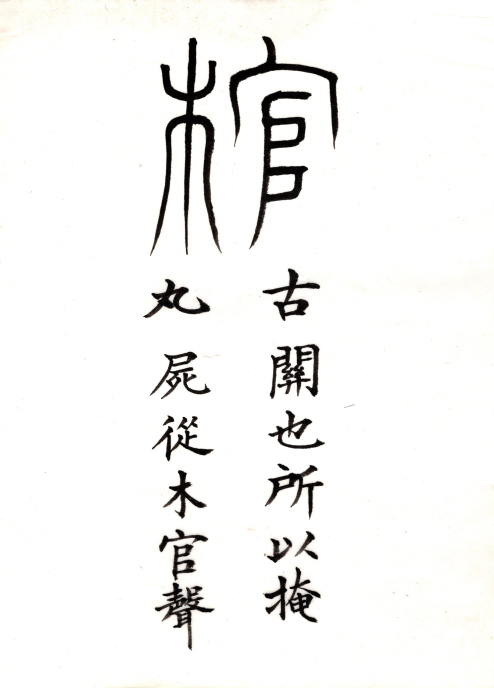 棺
古關也所以掩
丸屍從木官聲